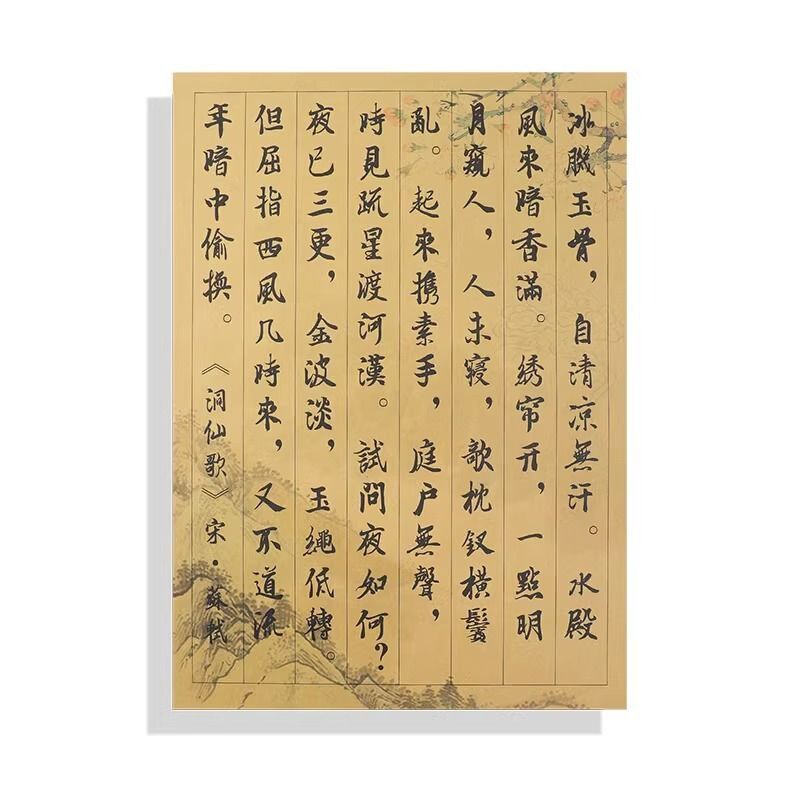 冰肌玉骨，自清凉無汗。水殿
風來暗香滿。绣帘开，一點明
月窺人，人未寝，歌枕釵橫鬢
亂。起來携素手，庭户無聲，
時見疏星渡河漢。試問夜如何？
夜已三更，金波淡，玉繩低轉。
但屈指西風几時來，又不道流
年暗中偷换。《洞仙歌》宋·蘇軾